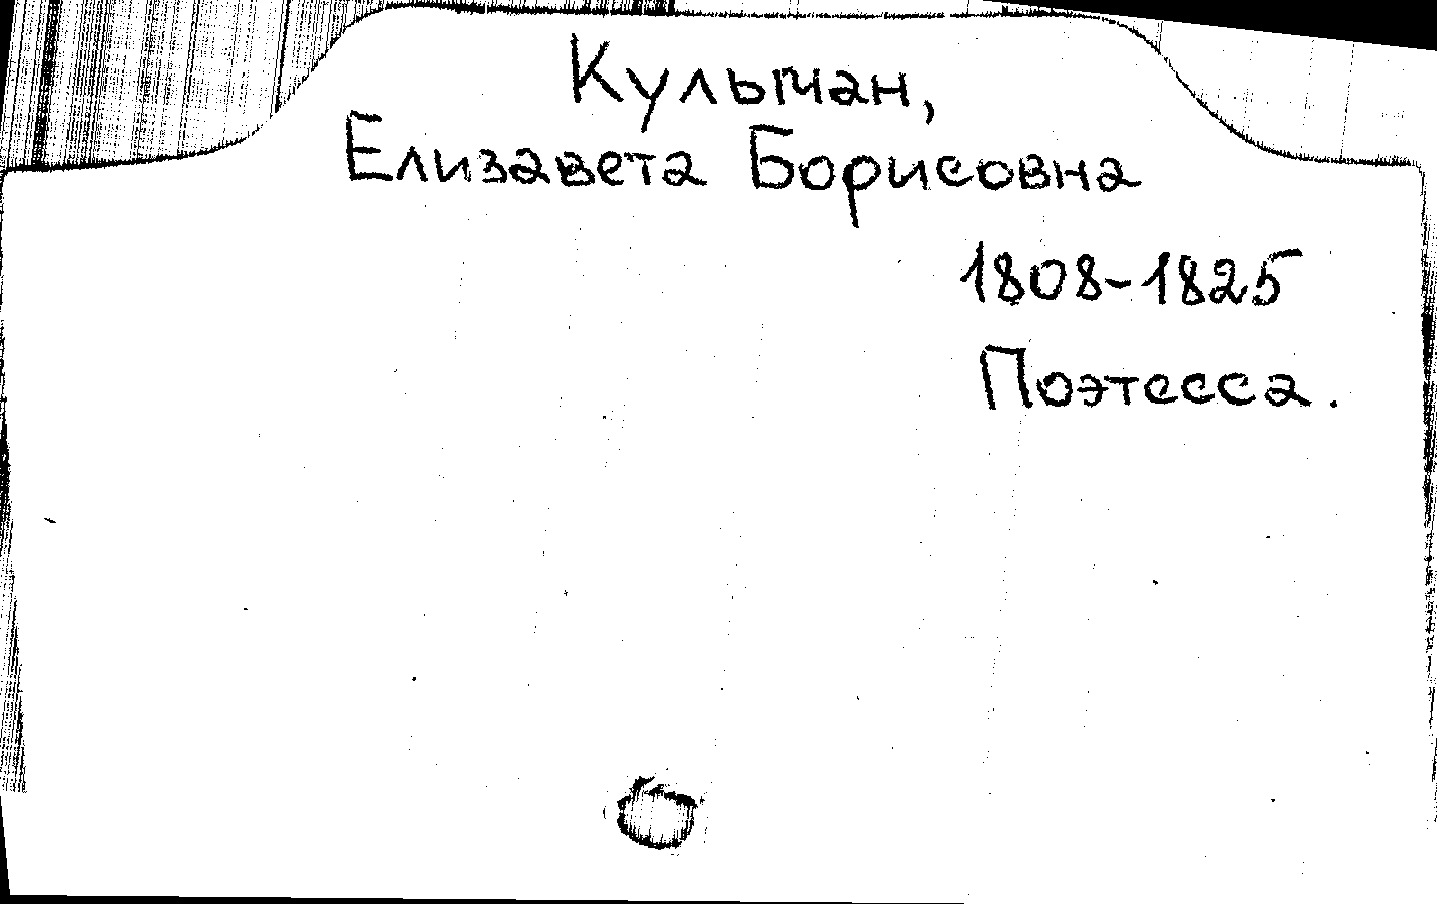 Кульман,
Елизавета Борисовна
1808-1825
Поэтесса.